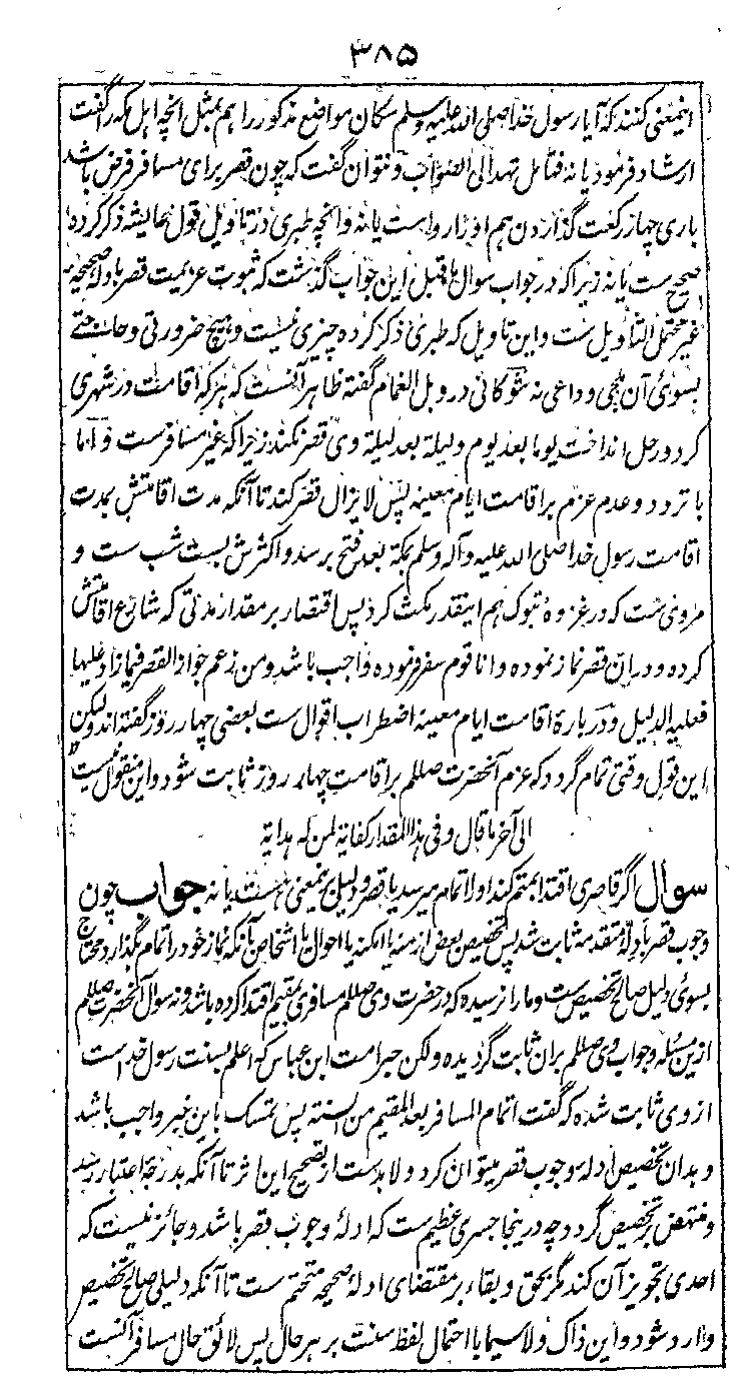 ۳۸۵
اینمعنی کنند که آیا رسول خدا صلی الله علیه وسلم سکان مواضع مذکور را هم بمثل انچه اهل مکه را گفت
ارشاد فرمود یا نه فتأمل تهد الی الصواب و نتوان گفت که چون قصر برای مسافر فرض باشد
باری چهار رکعت گذاردن هم او را رواست یا نه و انچه طبری در تاویل قول عایشه ذکر کرده
صحیح ست یا نه زیرا که در جواب سوال ما قبل این جواب گذشت که ثبوت عزیمت قصر بادله صحیحه
غیر محتمل التاویل ست و این تاویل که طبری ذکر کرده چیزی نیست و هیچ ضرورتی و حاجتی
بسوی آن ملجی و داعی نه شوکانی در وبل الغمام گفته ظاهر آنست که هر که اقامت در شهری
کرد و رحل انداخت یوما بعد یوم ولیلة بعد لیلة وی قصر نکند زیرا که غیر مسافرست و اما
با تردد و عدم عزم بر اقامت ایام معینه پس لا یزال قصر کند تا آنکه مدت اقامتش بمدت
اقامت رسول خدا صلی الله علیه و آله وسلم بمکة بعد فتح برسد و اکثرش بست شب ست و
مروی ست که در غزوه تبوک هم اینقدر مکث کرد پس اقتصار بر مقدار مدتی که شارع اقامتش
کرده و دران قصر نماز نموده و انا قوم سفر فرموده واجب باشد و من زعم جواز القصر فیما زاد علیها
فعلیه الدلیل و درباره اقامت ایام معینه اضطراب اقوال ست بعضی چهار روز گفته اند ولیکن
این قول وقتی تمام گردد که عزم آنحضرت صللم بر اقامت چهار روز ثابت شود و این منقول نیست
الی آخر ما قال و فی هذا المقدار کفایة لمن له هدایة
سوال اگر قاصری اقتدا بمتم کند او لا تمام میرسد یا قصر و دلیل برینمعنی هست یا نه جواب چون
وجوب قصر بادله متقدمه ثابت شد پس تخصیص بعض ازمنه یا امکنه یا احوال یا اشخاص بآنکه نماز خود را تمام بگذارد محتاج
بسوی دلیل صالح تخصیص ست و ما را نرسیده که در حضرت وی صللم مسافری بمقیم اقتدا کرده باشد و نه سوال آنحضرت صللم
ازین مسئله و جواب وی صللم بران ثابت گردیده ولکن حبر امت ابن عباس که اعلم بسنت رسول خداست
از وی ثابت شده که گفت اتمام المسافر بعد المقیم من السنة پس تمسک باین خبر واجب باشد
و بدان تخصیص ادله وجوب قصر میتوان کرد و لا بدست از تصحیح این اثر تا آنکه بدرجه اعتبار رسد
و منتهض بر تخصیص گردد چه درینجا جسری عظیم ست که ادله وجوب قصر باشد و جائز نیست که
احدی تجویز آن کند مگر بحق و بقاء بر مقتضای ادله صحیحه متحتم ست تا آنکه دلیلی صالح تخصیص
وارد شود و این ذاک و لا سیما با احتمال لفظ سنت بر هر حال پس لائق حال مسافر آنست